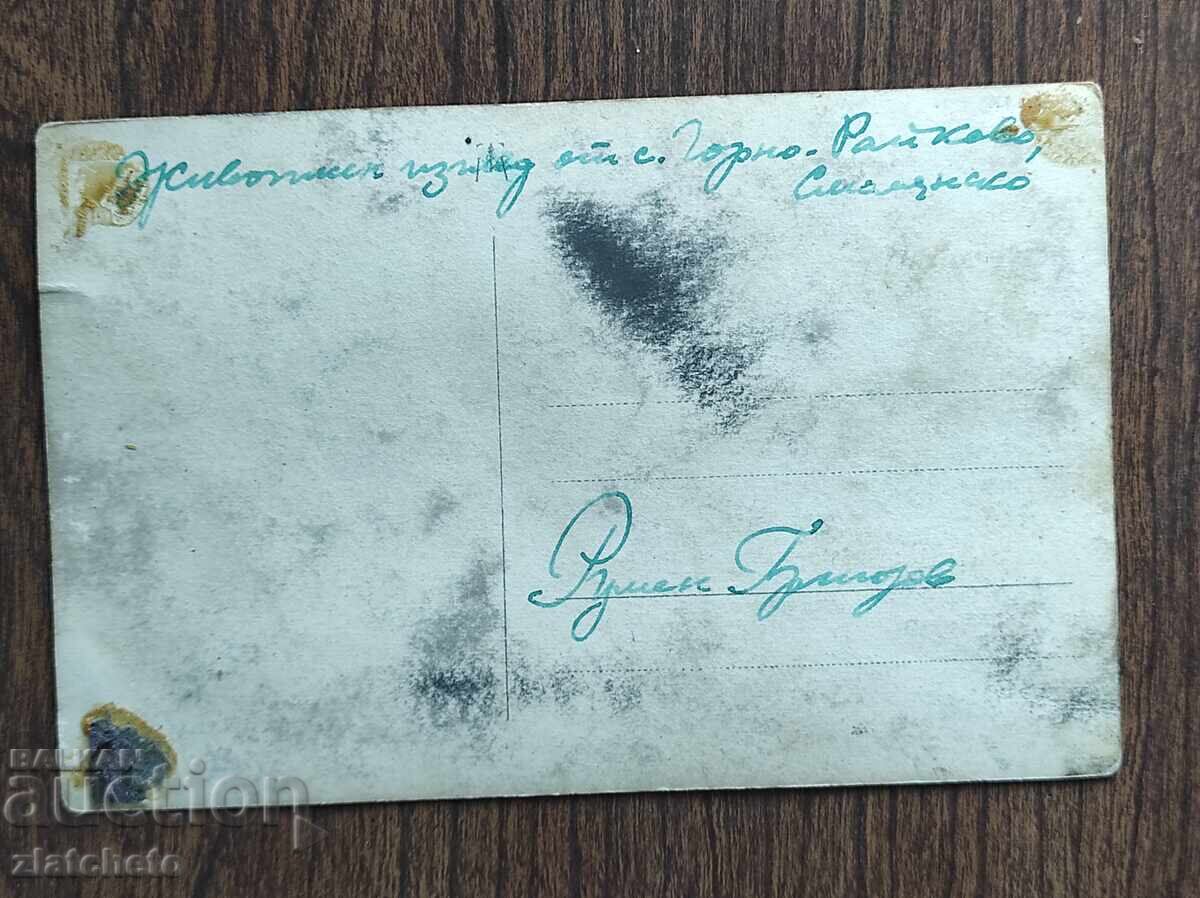 Живописен изглед от с. Горно-Райково,
Смолянско
Румен Григоров
BALKAN
auction
zlatcheto